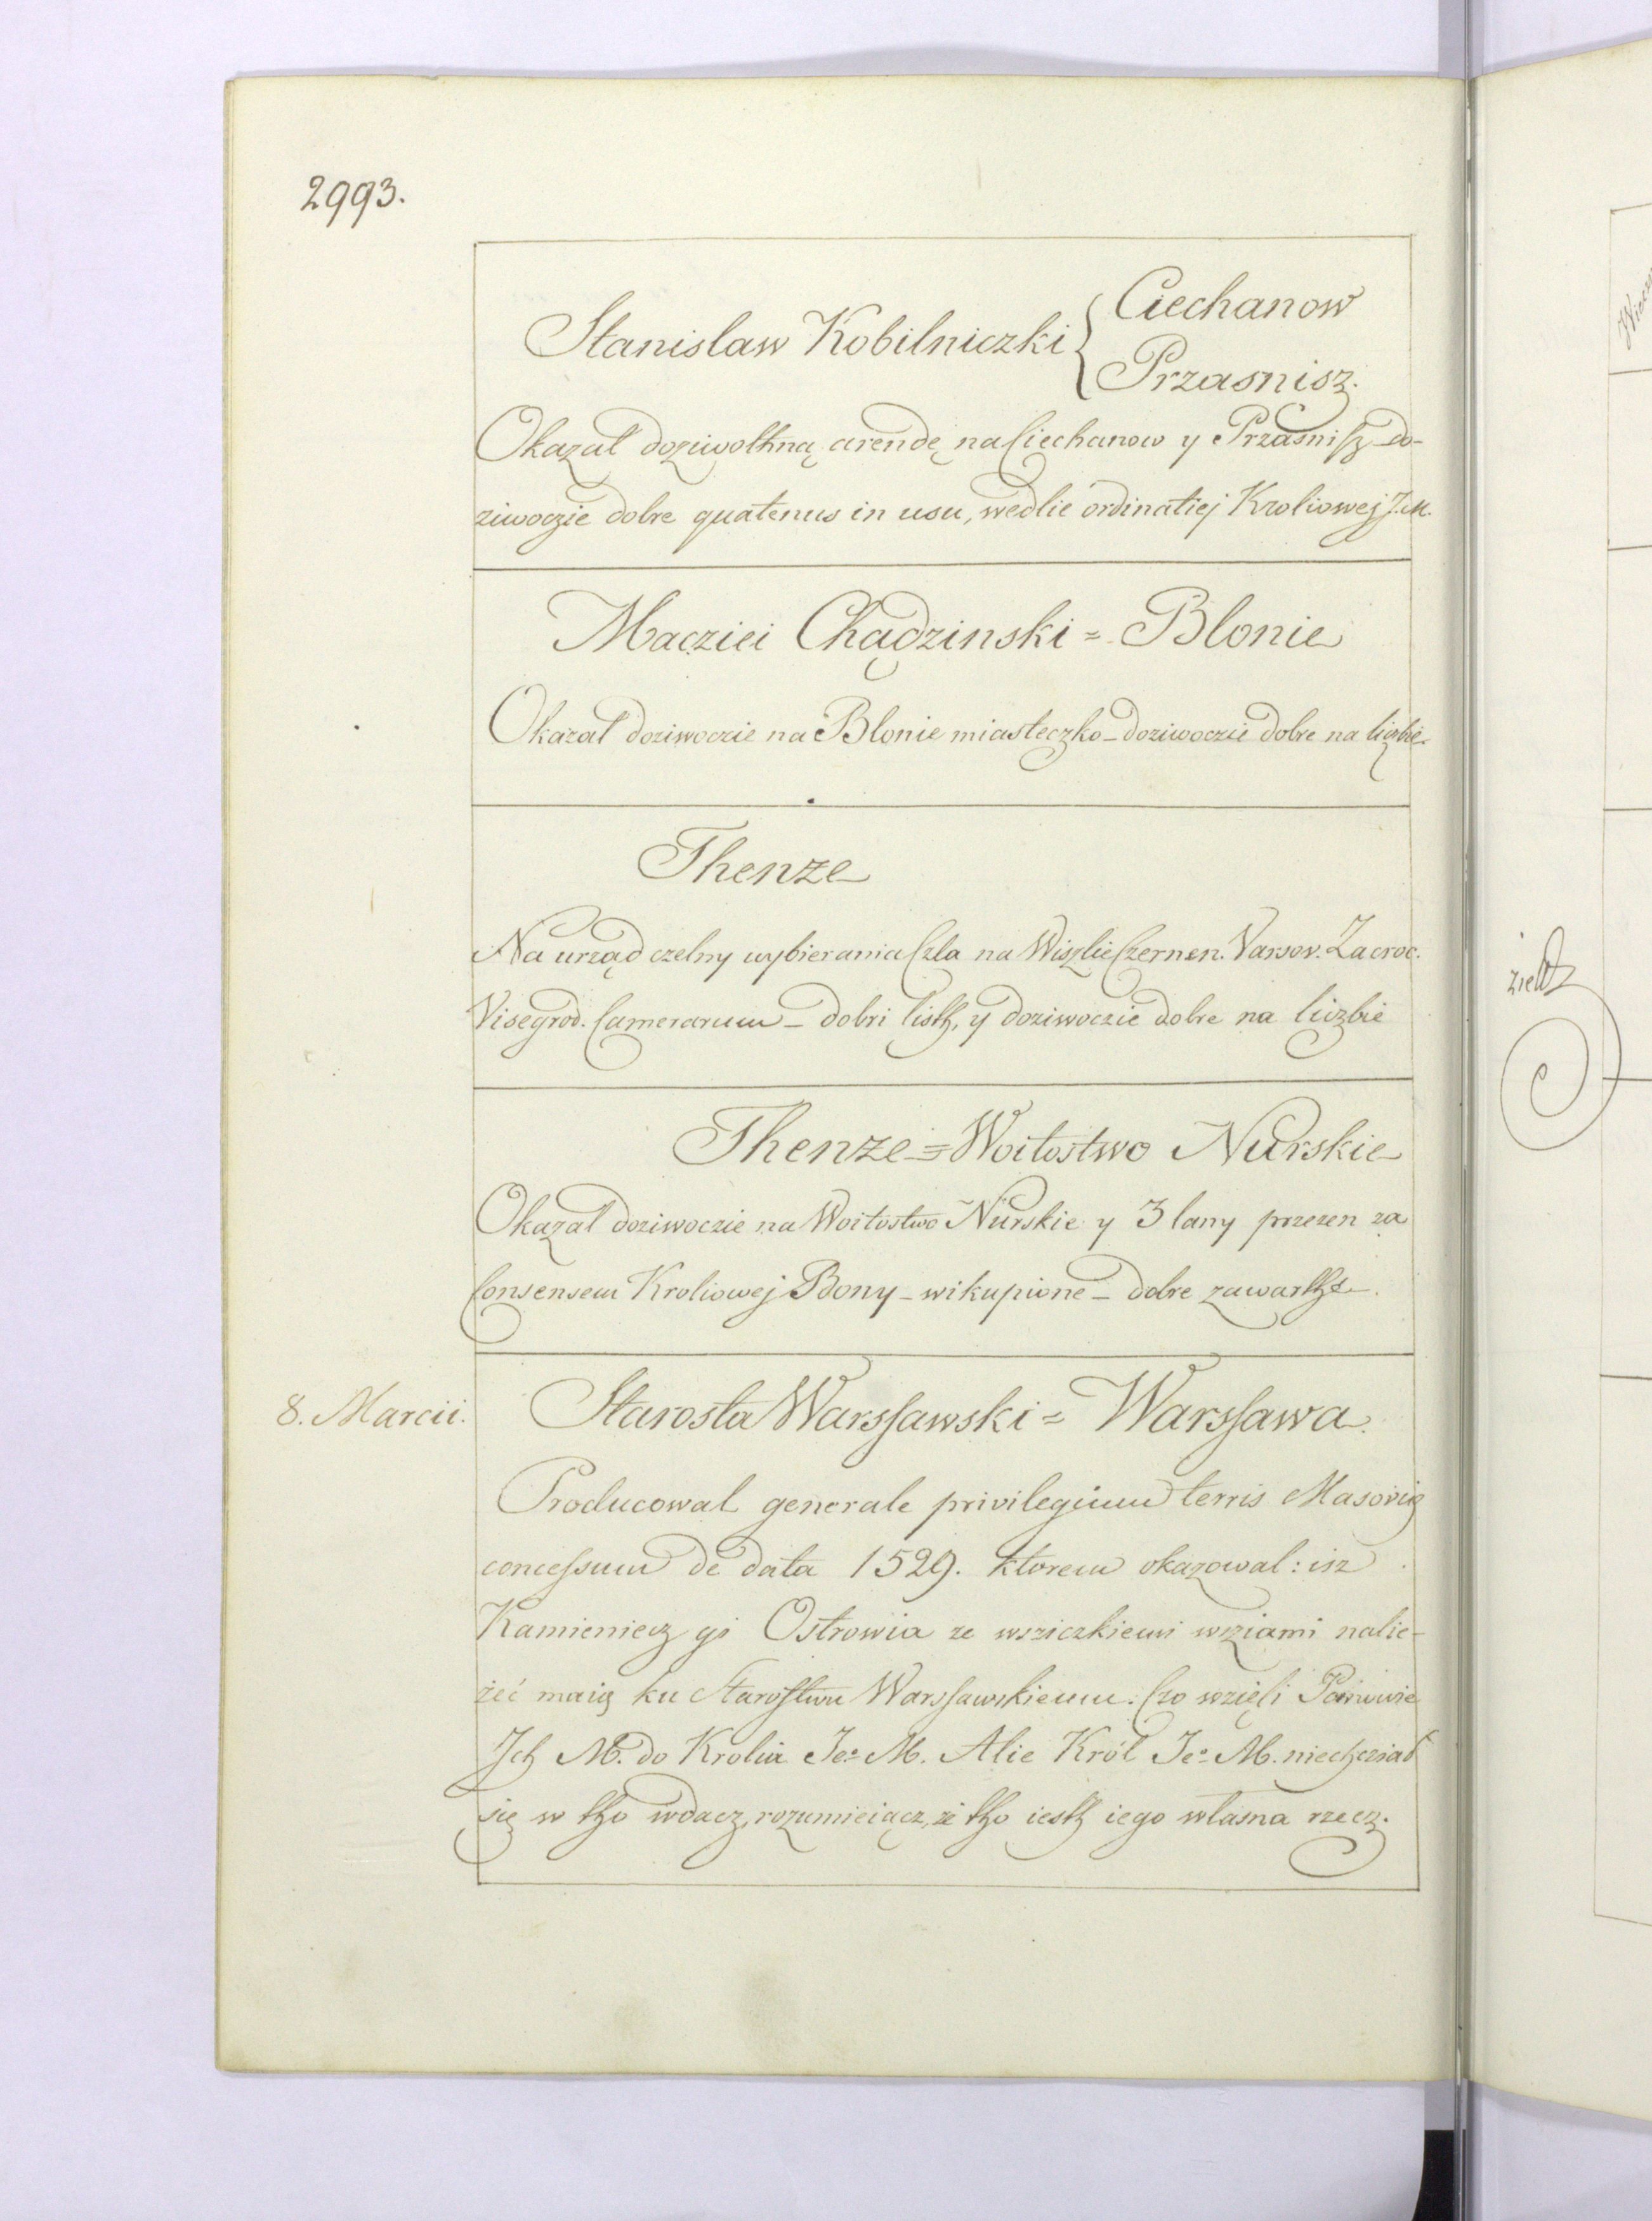 2993.
Stanislaw Kobilniczki { Ciechanow
Przasnisz.
Okazał doziwothną arendę na Ciechanow y Przasnisz do-
ziwoczie dobre quatenus in usu, wedlie ordinatiej Kroliowej J.M.
Macziei Chądzinski = Blonie
Okazał doziwoczie na Blonie miasteczko – doziwoczie dobre na liczbie.
Thenze
Na urząd czelny wybierania Czla na Wiszlie Czernen. Varsov. Zacroc.
Visegrod. Camerarum – dobri listh, y doziwoczie dobre na liczbie
Thenze = Woitostwo Nurskie
Okazał doziwoczie na Woitostwo Nurskie y 3 lany przezen za
Consensem Kroliowej Bony – wikupione – dobre zawarthe.
8. Marcii.
Starosta Warssawski = Warssawa.
Producowal generale privilegium terris Masovię
concessum de data 1529. ktorem okazowal: isz
Kamieniecz gi Ostrowia ze wsziczkiemi wsziami nalie-
żeć maią ku Starostwu Warssawskiemu. Czo wzięli Panowie
Jch M. do Krolia Je° M. Alie Król Je° M. niechcział
się w tho wdacz, rozumieiącz, że tho iesth iego własna rzecz.